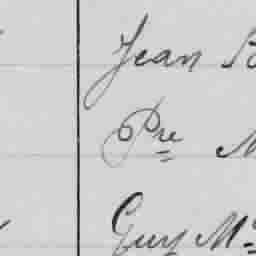 Jean B
Pre M
Guy M